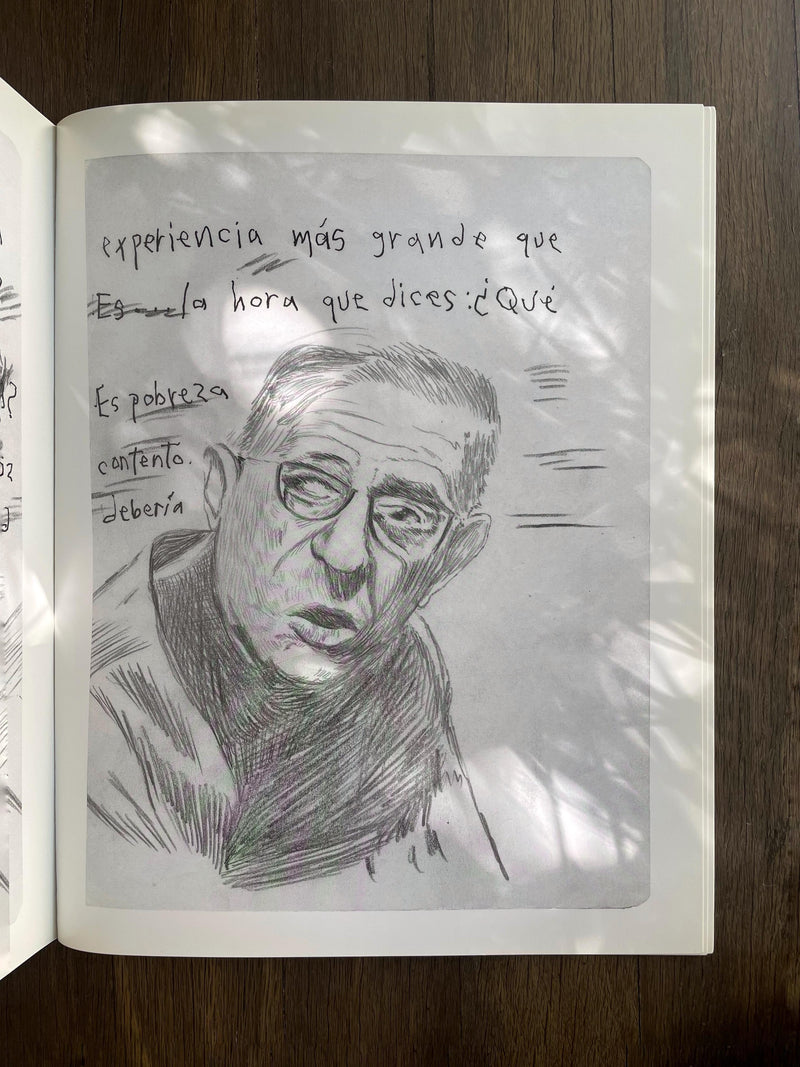 experiencia más grande que
Es...la hora que dices:¿Qué
Es pobreza
contento.
debería